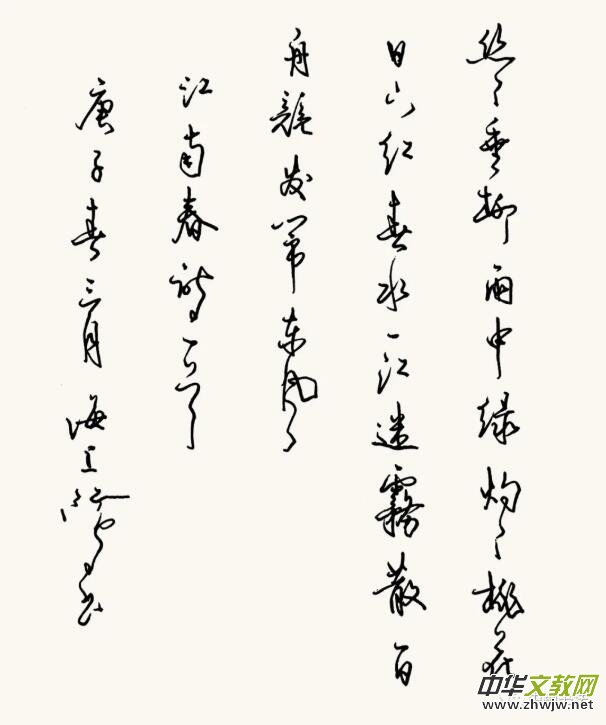 丝丝垂柳雨中绿灼灼桃花
日下红春水一江迷雾散百
舟竞发东风
江南春诗一首
庚子春三月海上书
中华文教网
www.zhwjw.net